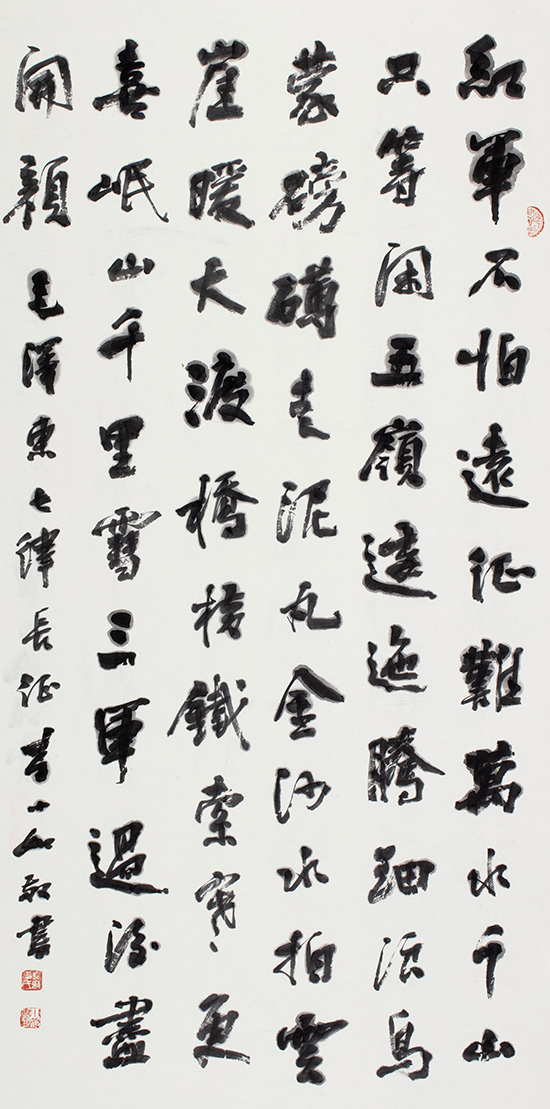 紅軍不怕遠征難萬水千山
只等閑五嶺逶迤騰細浪烏
蒙磅礴走泥丸金沙水拍雲
崖暖大渡橋橫鐵索寒更
喜岷山千里雪三軍過後盡
開顏 毛澤東七律長征 書